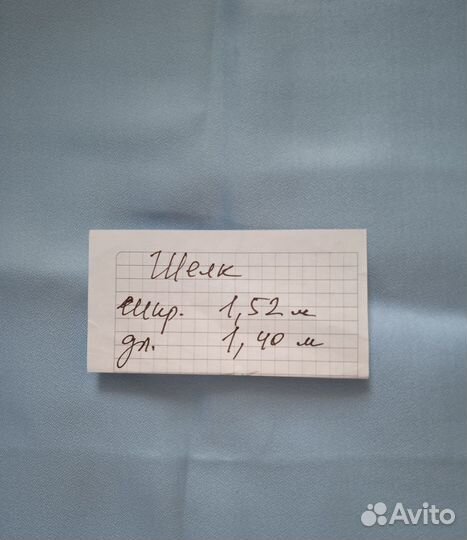 Шелк
шир. 1,52 м
дл. 1,40 м
Avito